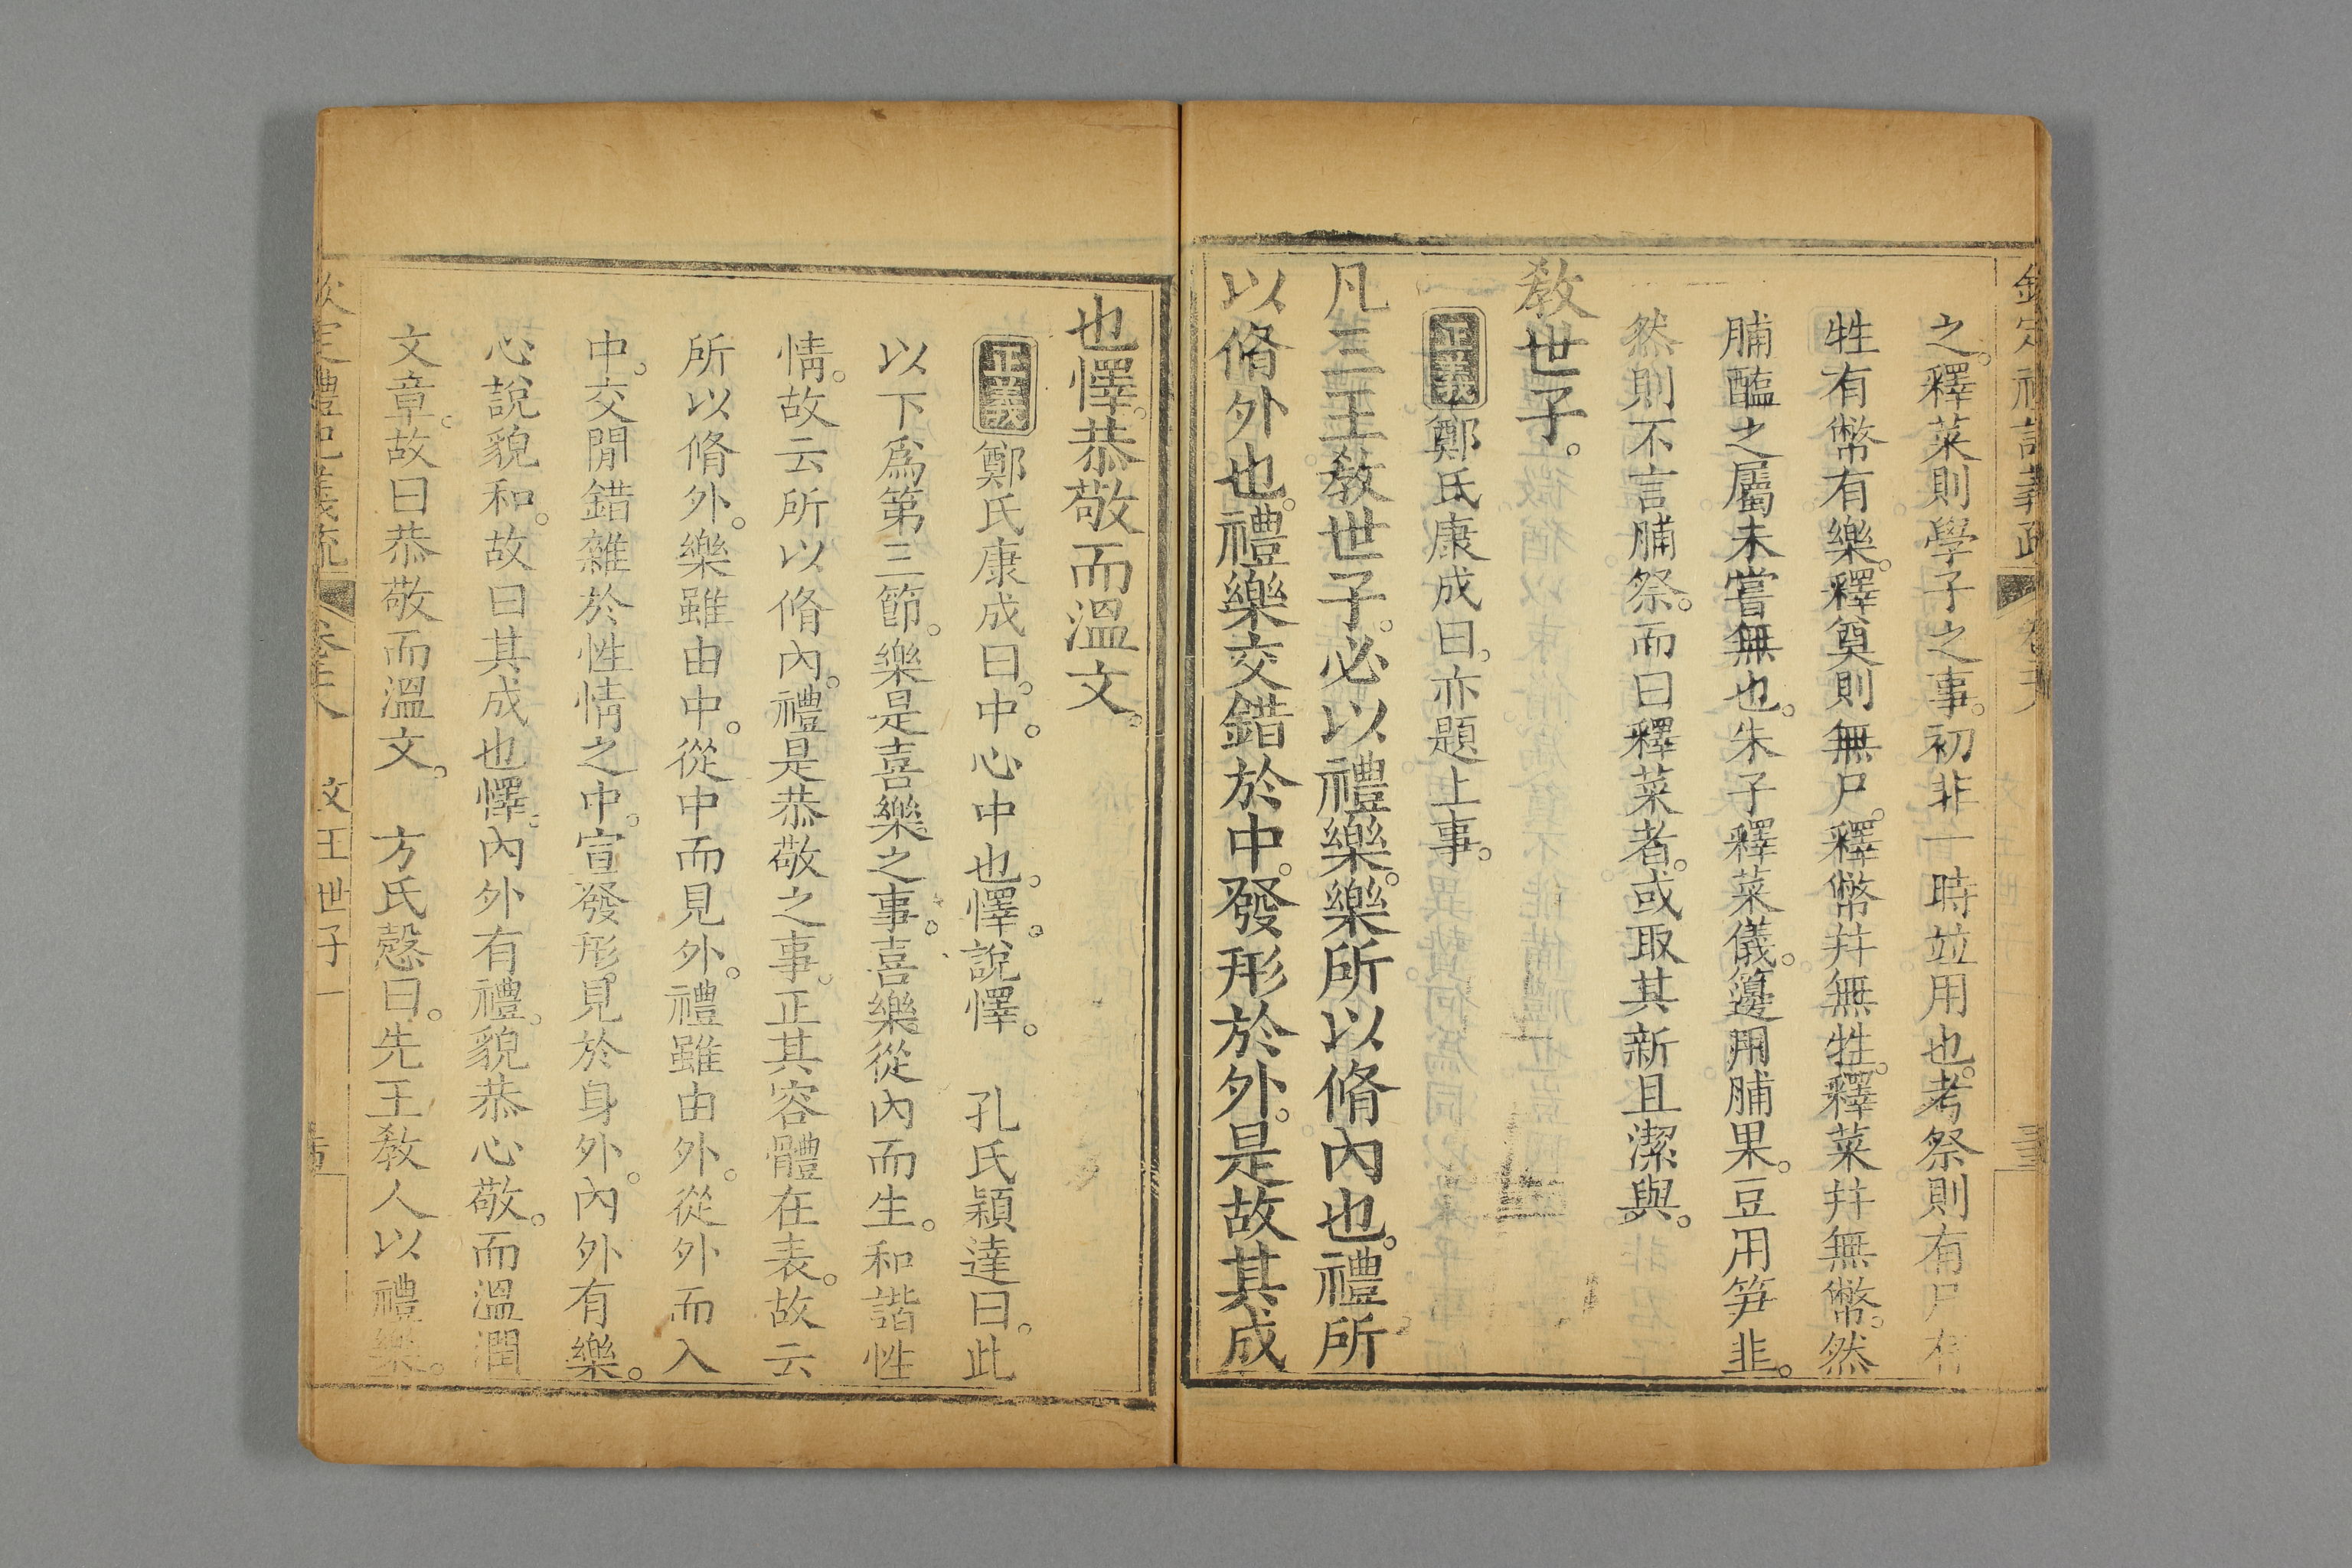 欽定禮記義疏 卷二十八
之。釋菜則學子之事。初非一時竝用也。考祭則有尸有
牲有幣有樂。釋奠則無尸。釋幣幷無牲。釋菜幷無幣。然
脯醢之屬未嘗無也。朱子釋菜儀。籩用脯果。豆用筍韭。
然則不言脯祭。而曰釋菜者。或取其新且潔與。
敎世子。
正義鄭氏康成曰。亦題上事。
凡三王敎世子。必以禮樂。樂所以脩內也。禮所
以脩外也。禮樂交錯於中。發形於外。是故其成
也懌。恭敬而溫文。
正義鄭氏康成曰。中。心中也。懌。說懌。 孔氏穎達曰。此
以下爲第三節。樂是喜樂之事。喜樂從內而生。和諧性
情。故云所以脩內。禮是恭敬之事。正其容體在表。故云
所以脩外。樂雖由中。從中而見外。禮雖由外。從外而入
中。交閒錯雜於性情之中。宣發形見於身外。內外有樂。
心說貌和。故曰其成也懌。內外有禮。貌恭心敬。而溫潤
文章。故曰恭敬而溫文。 方氏慤曰。先王敎人以禮樂。
欽定禮記義疏 卷二十八 文王世子一